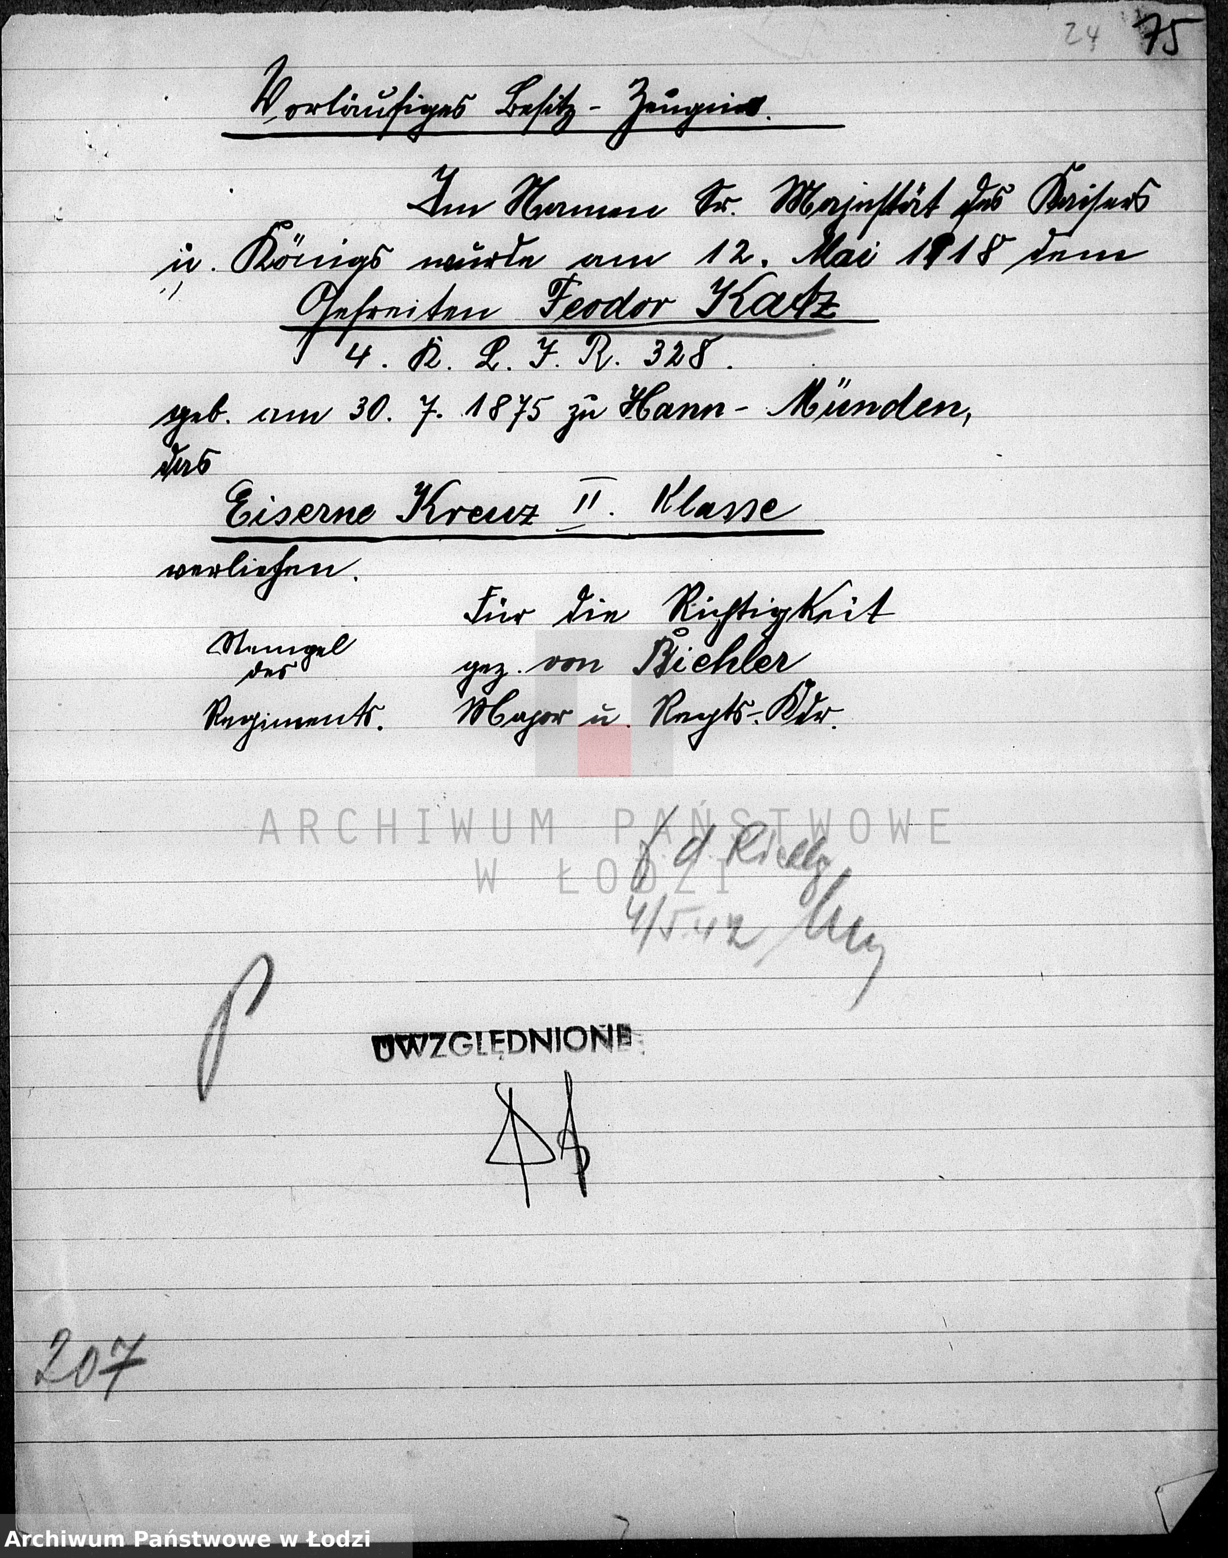 24 75
Vorläufiges Besitz-Zeugnis.
Im Namen Sr. Majestät des Kaisers
u. Königs wurde am 12. Mai 1918 dem
Gefreiten Feodor Katz
4. K. L. J. R. 328.
geb. am 30. 7. 1875 zu Hann-Münden,
das
Eiserne Kreuz II. Klasse
verliehen.
Für die Richtigkeit
Stempel
des
Regiments.
gez. von Biehler
Major u. Regts-Kdr.
ARCHIWUM PAŃSTWOWE
W ŁODZI
4/5.42
UWZGLĘDNIONE
207
Archiwum Państwowe w Łodzi